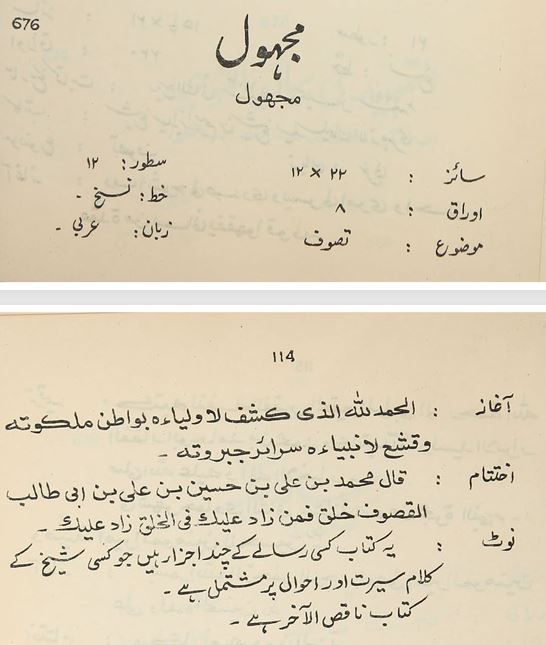 676
مجہول
مجھول
سائز : ۲۲ × ۱۲ سطور: ۱۲
اوراق : ۸ خط: نسخ -
موضوع : تصوف زبان: عربی -
114
آغاز : الحمد لله الذی کشف لاولیاءہ بواطن ملکوتہ
وقشع لانبیاءہ سرائر جبروتہ -
اختتام : قال محمد بن علی بن حسین بن علی بن ابی طالب
القصوف خلق فمن زاد علیك فی الخلق زاد علیك -
نوٹ : یہ کتاب کسی رسالے کے چند اجزا ہیں جو کسی شیخ کے
کلام سیرت اور احوال پر مشتمل ہے -
کتاب ناقص الآخر ہے -